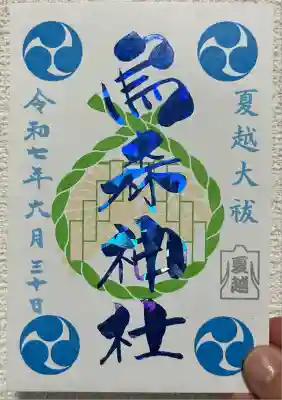 夏越大祓
夏越
烏森神社
令和七年六月三十日